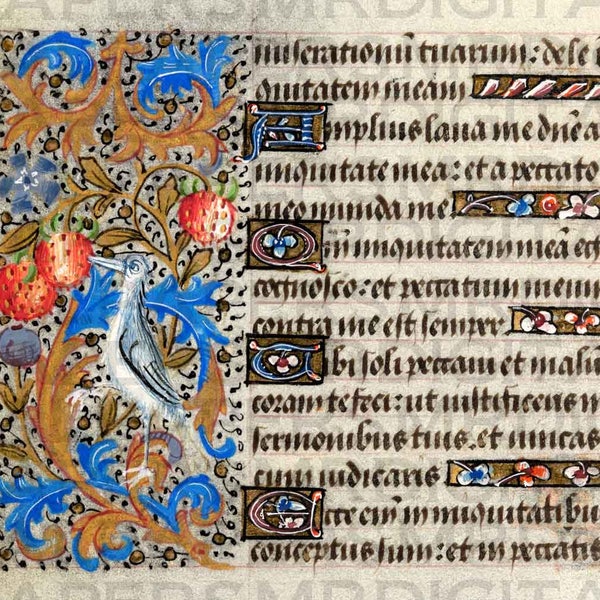 APERSMRDIGITA
miserationū tuarum: dele i
quitatem meam
Amplius laua me dn̄e a
iniquitate mea: et a peccato
meo munda me
Qm̄ iniquitatem meā eg
cognosco: et peccatum meum
contra me est semper
Tibi soli peccaui et malu
coram te feci: ut iustificeris in
sermonibus tuis. et uincas
cum iudicaris
Ecce em̄ in iniquitatibu
conceptus sum: et in peccatis
APERSMRDIGITA